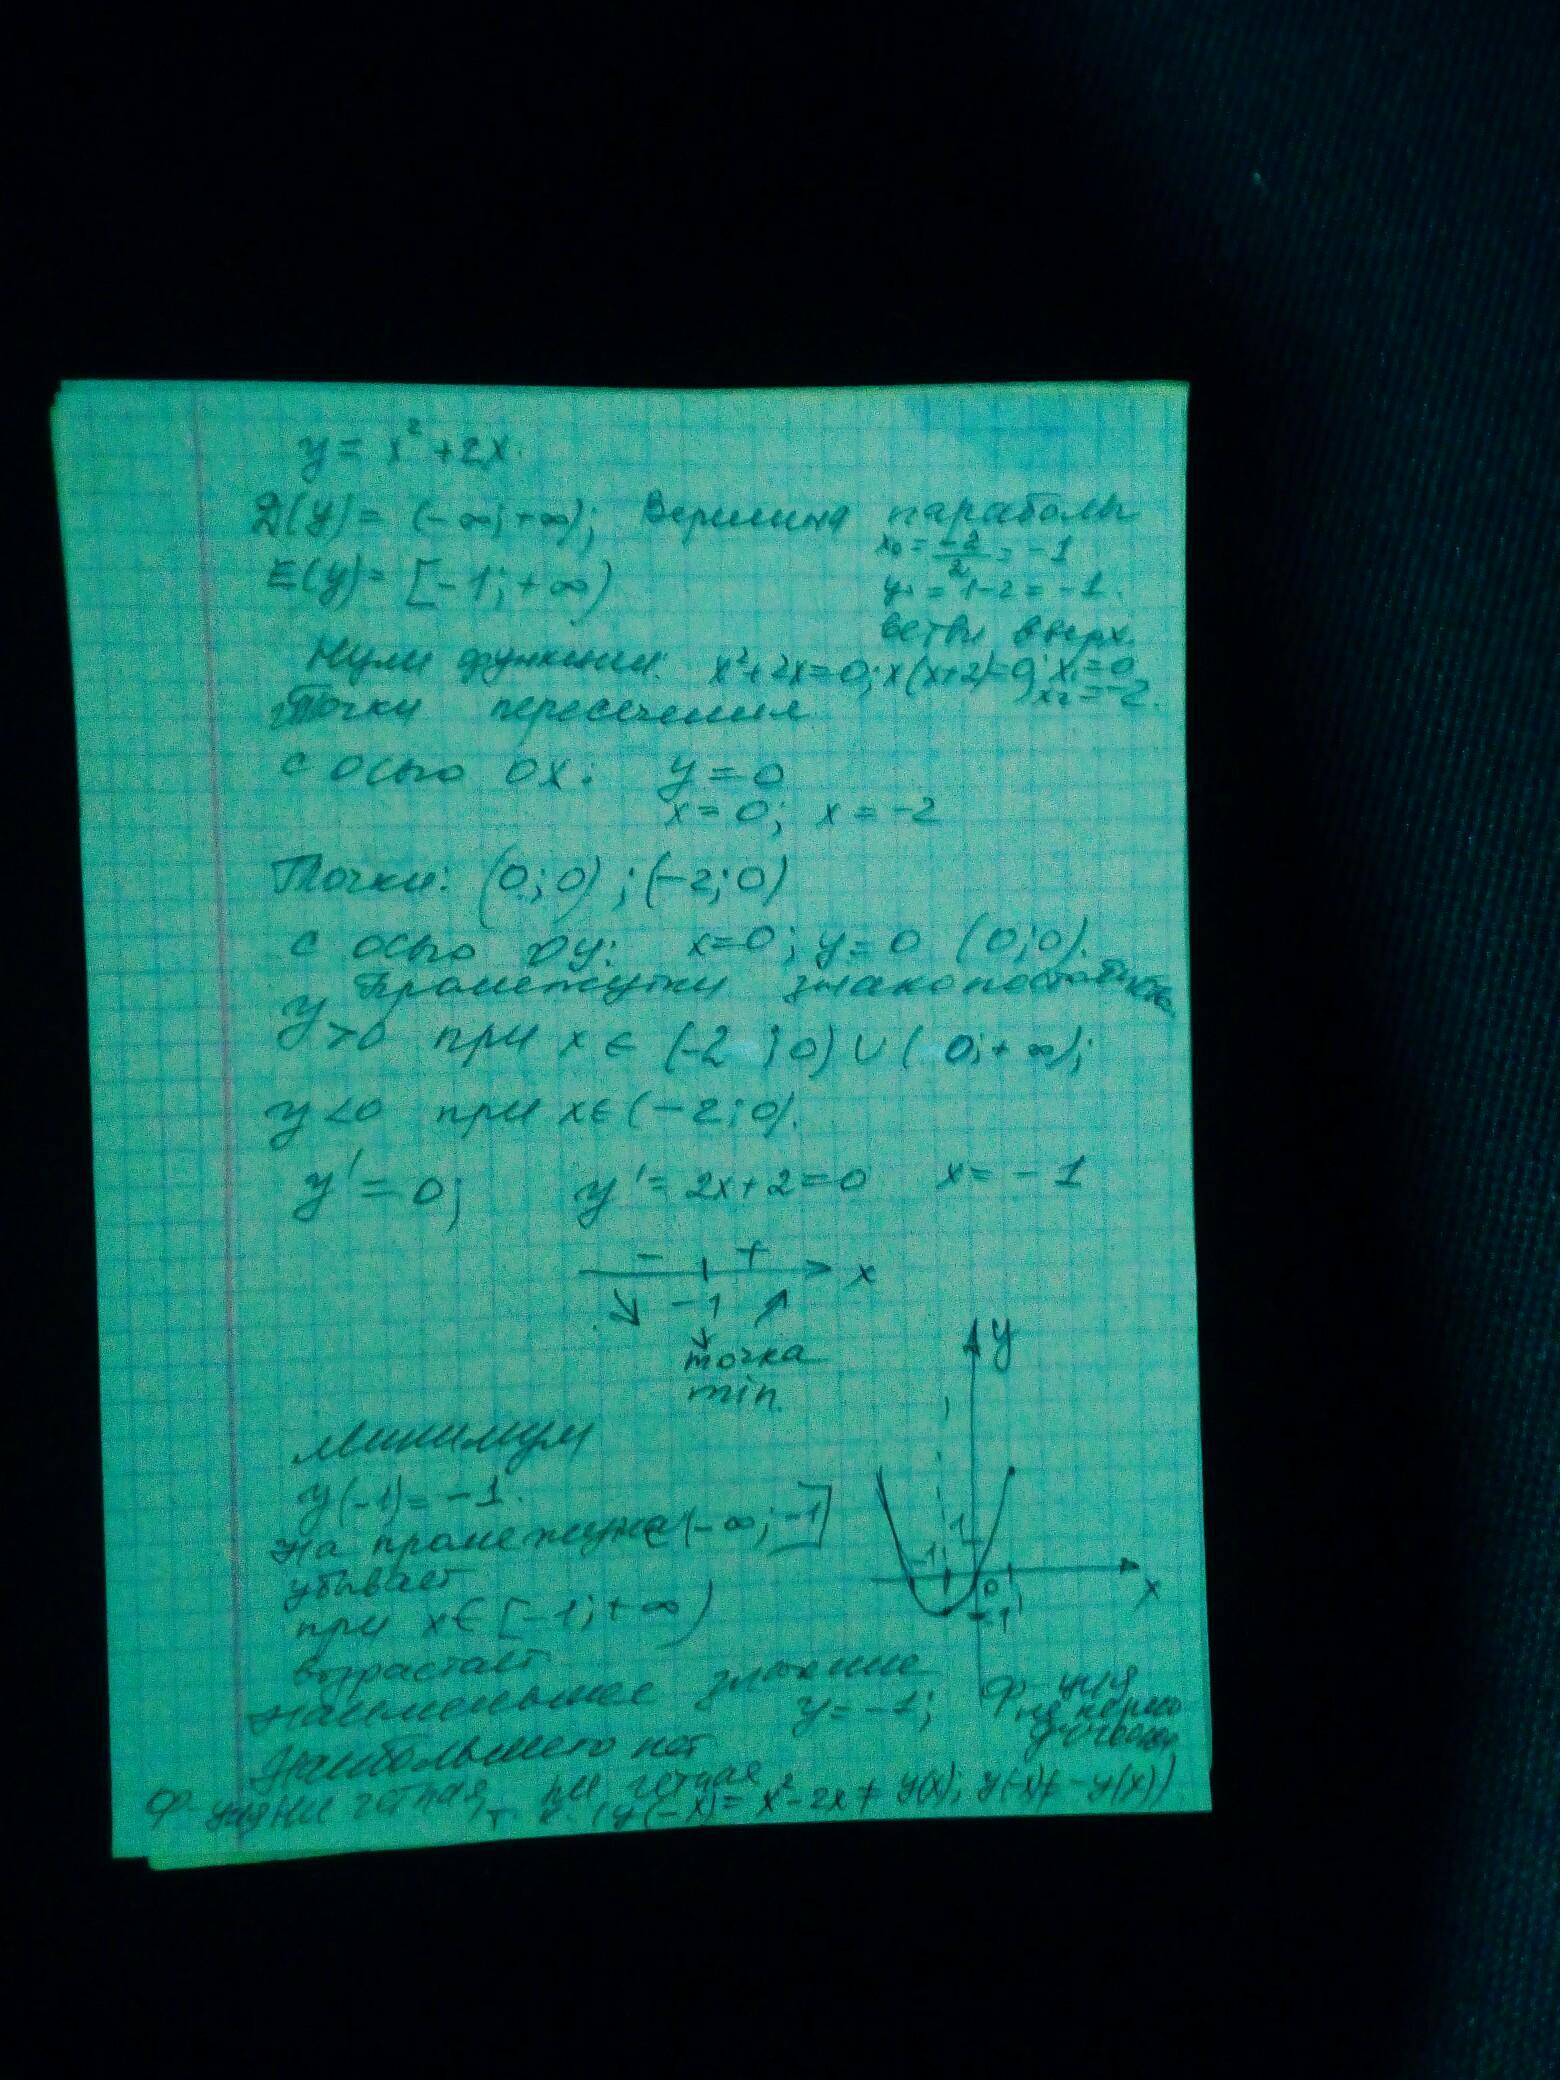 y = x² + 2x.
D(y) = (-∞; +∞); Вершина параболы
x₀ = -2/2 = -1
E(y) = [-1; +∞)
y₀ = 1-2 = -1.
ветви вверх.
Нули функции: x²+2x=0; x(x+2)=0; x₁=0
x₂=-2.
Точки пересечения
с осью OX: y = 0
x = 0; x = -2
Точки: (0; 0) ; (-2; 0)
с осью OY: x=0; y=0 (0;0).
Промежутки
y>0 при x ∈ (-2 ; 0) ∪ ( 0; + ∞);
y<0 при x ∈ (-2; 0).
y' = 0; y' = 2x+2=0 x = -1
- +
x
-1
точка
min.
y
Минимум
y(-1) = -1.
на промежутке (-∞; -1]
убывает
при x ∈ [-1; +∞)
возрастает
1
-1
0
x
-1
Наименьшее значение
y = -1;
Ф-ция
не перио
дическая
Наибольшего нет
Ф-ция не четная, ни
т. к. (y(-x) = x²-2x ≠ y(x); y(-x) ≠ -y(x))